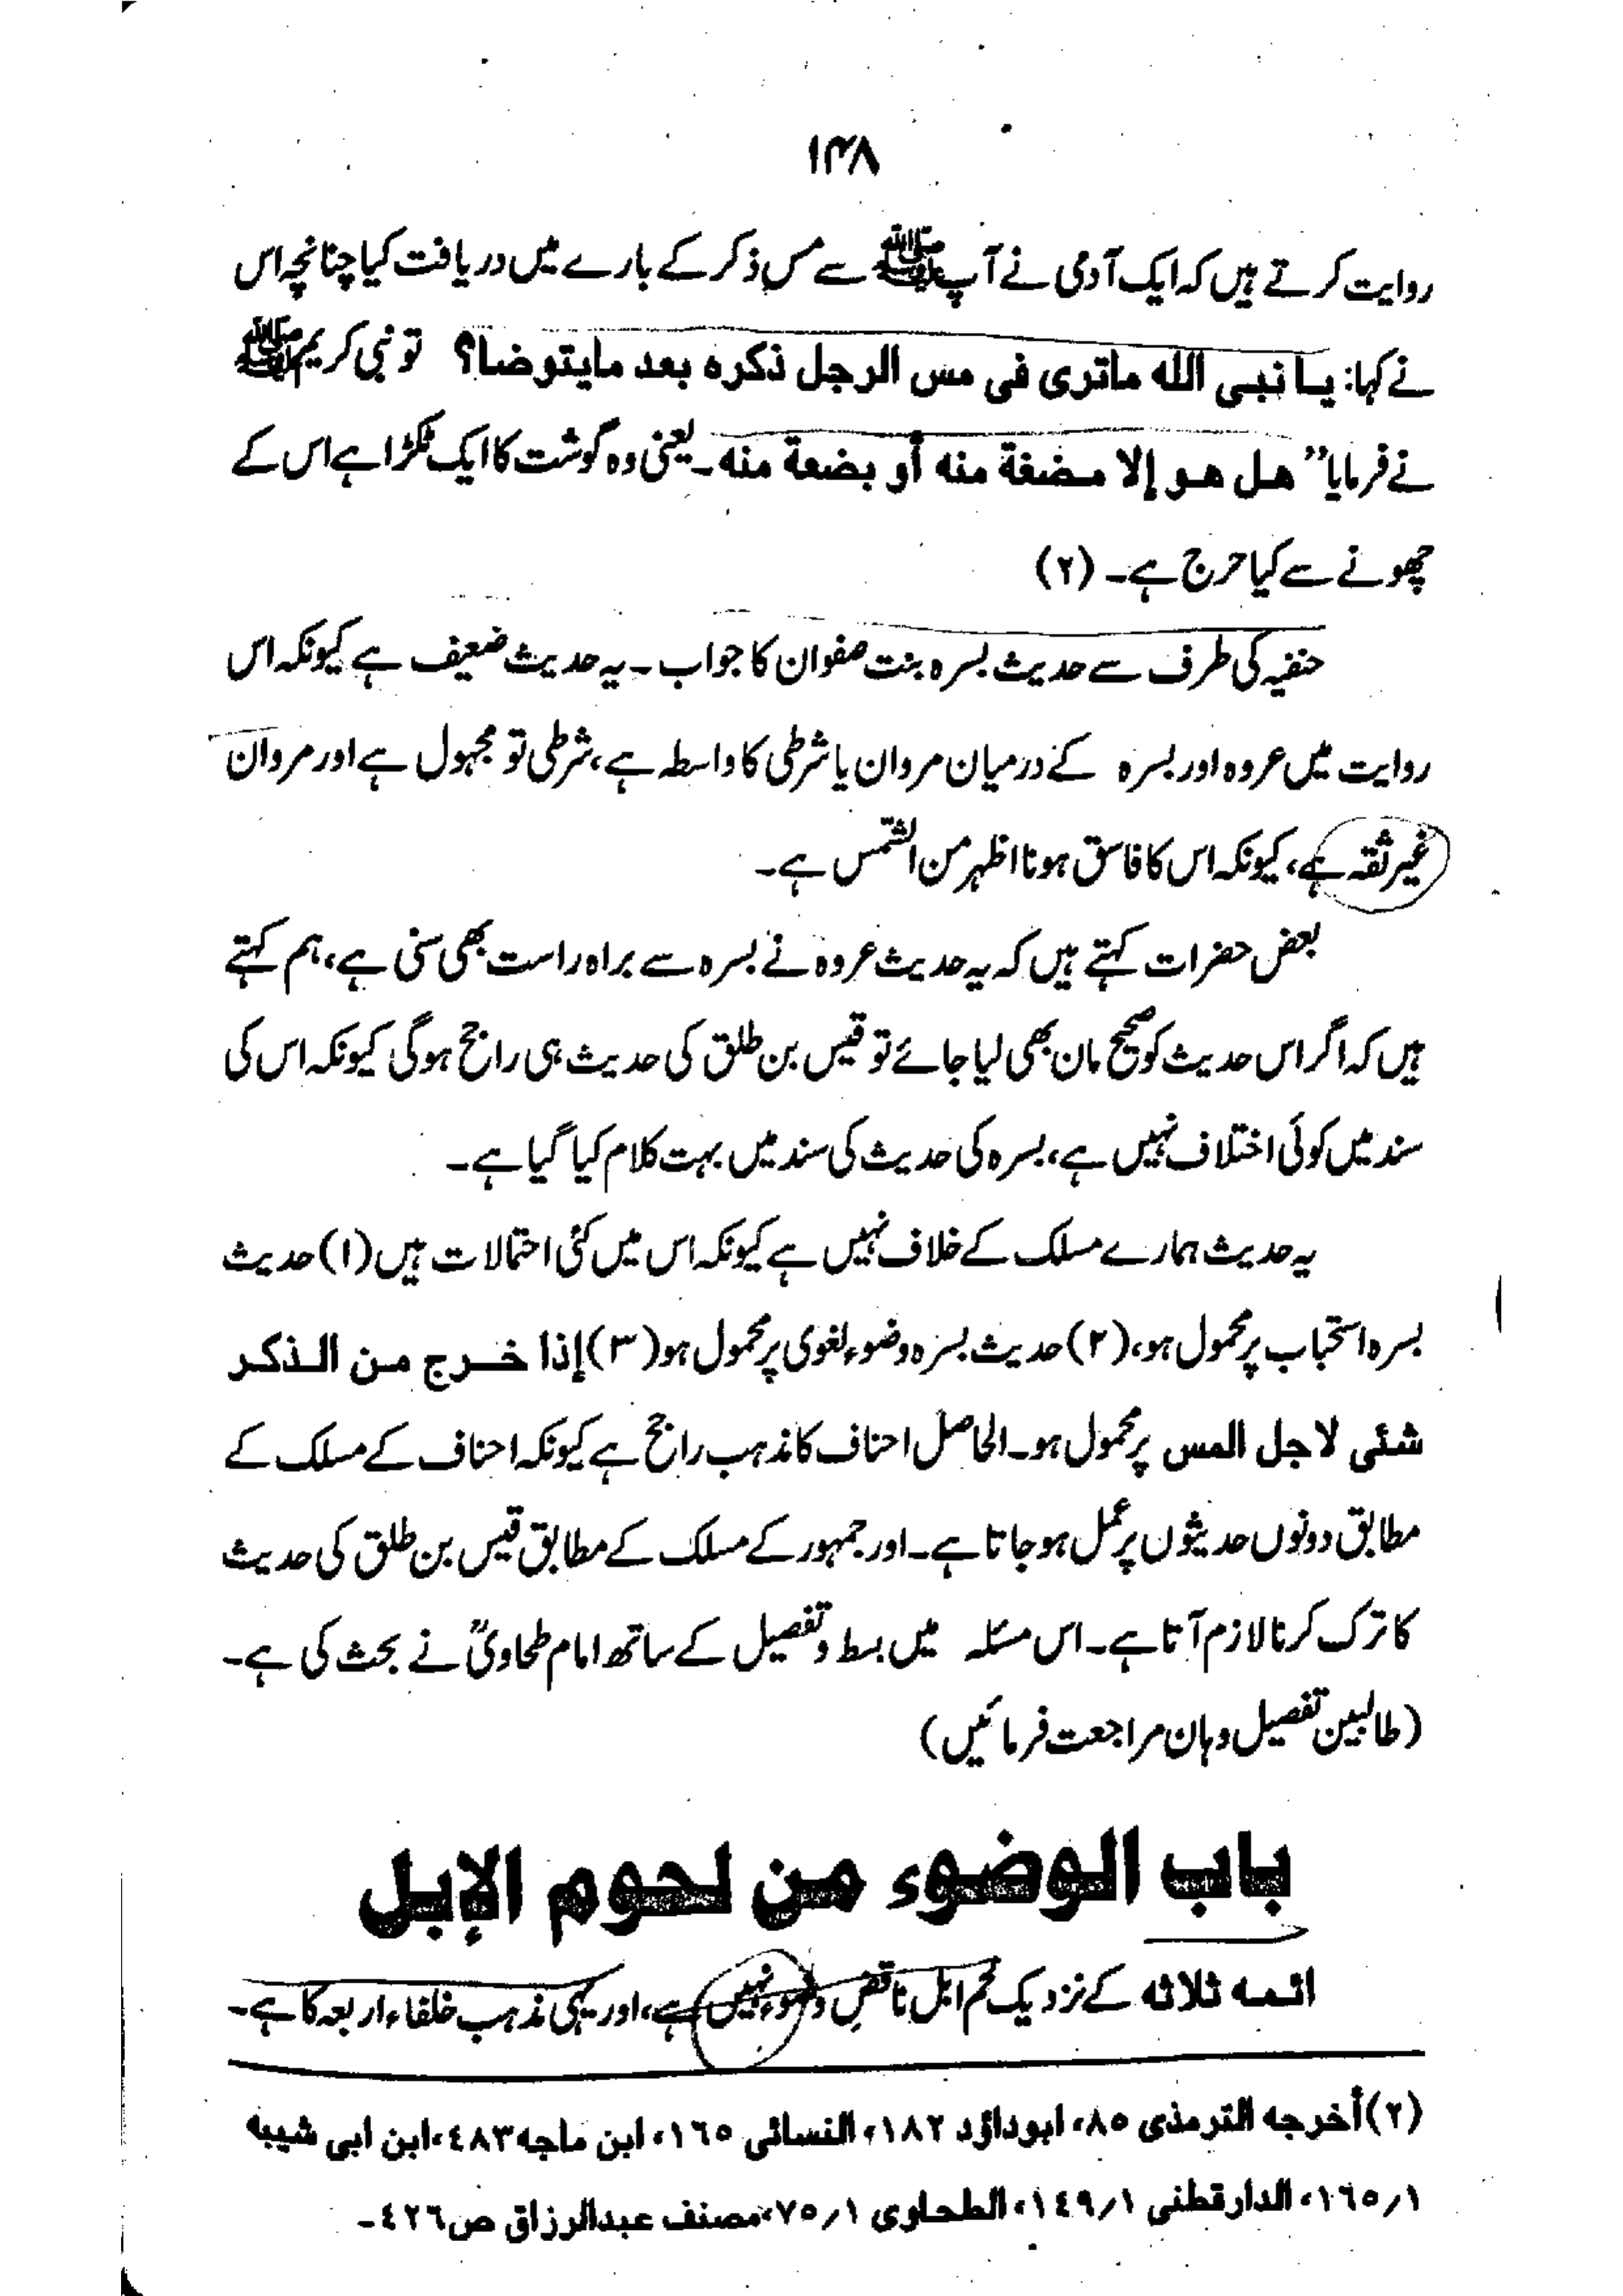 ۱۳۸
روایت کرتے ہیں کہ ایک آدمی نے آپ ﷺ سے مس ذکر کے بارے میں دریافت کیا چنانچہ اس
نے کہا: یا نبی الله ماتری فی مس الرجل ذکره بعد مایتوضا؟ تو نبی کریم ﷺ
نے فرمایا” هل هو إلا مضغة منه أو بضعة منه۔ یعنی وہ گوشت کا ایک ٹکڑا ہے اس کے
چھونے سے کیا حرج ہے۔ (۲)
حنفیہ کی طرف سے حدیث بسرہ بنت صفوان کا جواب۔ یہ حدیث ضعیف ہے کیونکہ اس
روایت میں عروہ اور بسرہ کے درمیان مروان یا شرطی کا واسطہ ہے، شرطی تو مجہول ہے اور مروان
غیر ثقہ ہے، کیونکہ اس کا فاسق ہونا اظہر من الشمس ہے۔
بعض حضرات کہتے ہیں کہ یہ حدیث عروہ نے بسرہ سے براہ راست بھی سنی ہے، ہم کہتے
ہیں کہ اگر اس حدیث کو صحیح مان بھی لیا جائے تو قیس بن طلق کی حدیث ہی راجح ہوگی کیونکہ اس کی
سند میں کوئی اختلاف نہیں ہے، بسرہ کی حدیث کی سند میں بہت کلام کیا گیا ہے۔
یہ حدیث ہمارے مسلک کے خلاف نہیں ہے کیونکہ اس میں کئی احتمالات ہیں (۱) حدیث
بسرہ استحباب پر محمول ہو، (۲) حدیث بسرہ وضوء لغوی پر محمول ہو (۳) إذا خرج من الذکر
شئی لاجل المس پر محمول ہو۔ الحاصل احناف کا مذہب راجح ہے کیونکہ احناف کے مسلک کے
مطابق دونوں حدیثوں پر عمل ہو جاتا ہے۔ اور جمہور کے مسلک کے مطابق قیس بن طلق کی حدیث
کا ترک کرنا لازم آتا ہے۔ اس مسئلہ میں بسط و تفصیل کے ساتھ امام طحاویؒ نے بحث کی ہے۔
(طالبین تفصیل وہان مراجعت فرمائیں)
باب الوضوء من لحوم الإبل
ائمہ ثلاثہ کے نزدیک لحم ابل ناقضِ وضوء نہیں ہے، اور یہی مذہب خلفاء اربعہ کا ہے۔
(۲) أخرجه الترمذی ۸۵، ابوداؤد ۱۸۲، النسائی ۱٦۵، ابن ماجه ٤۸۳، ابن ابی شیبه
۱٦۵/۱، الدارقطنی ۱٤۹/۱، الطحاوی ۷۵/۱، مصنف عبدالرزاق ص ٤۲٦۔